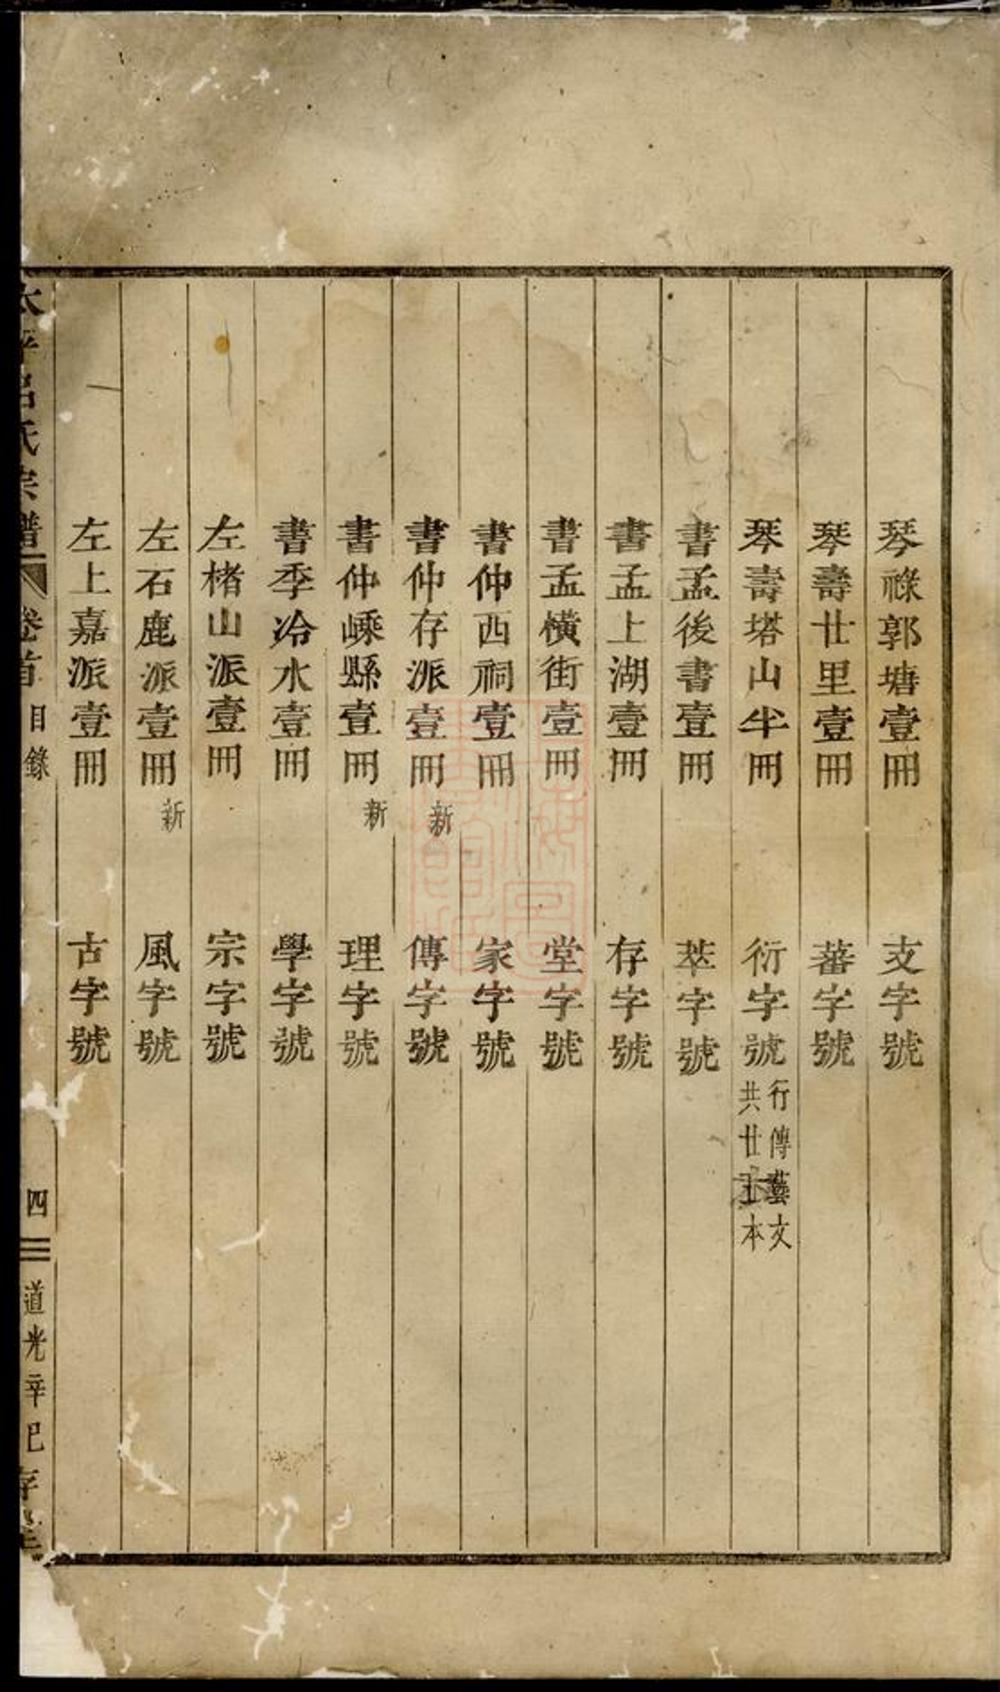 琴祿郭塘壹冊 支字號
琴壽廿里壹冊 蕃字號
琴壽塔山半冊 衍字號 行傳藝文 共廿 本
書孟後書壹冊 萃字號
書孟上湖壹冊 存字號
書孟橫街壹冊 堂字號
書仲西祠壹冊 家字號
書仲存派壹冊 新 傳字號
書仲嵊縣壹冊 新 理字號
書季冷水壹冊 學字號
左楮山派壹冊 宗字號
左石鹿派壹冊 新 風字號
左上嘉派壹冊 古字號
太平呂氏宗譜 卷首 目錄 四 道光辛巳存